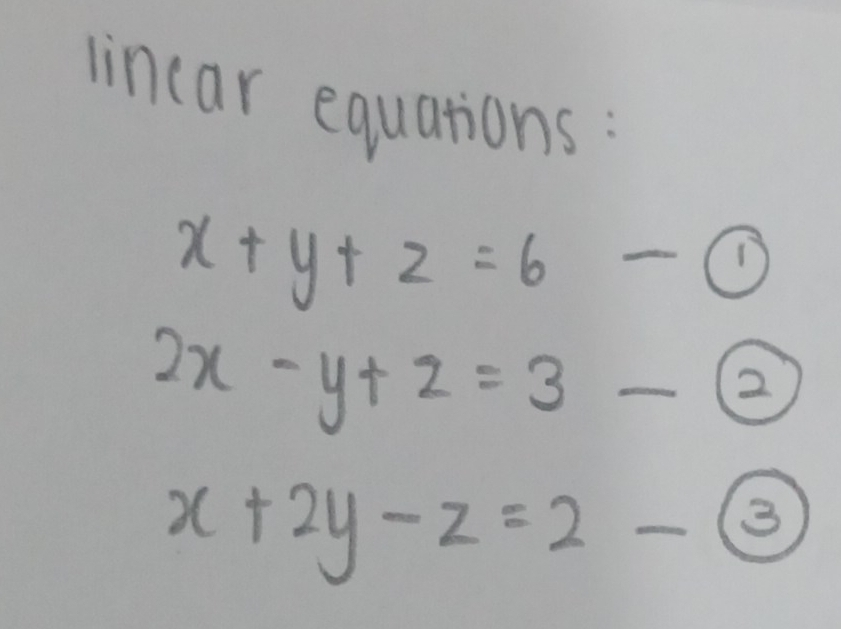 linear equations:
x + y + z = 6 — ①
2x - y + z = 3 — ②
x + 2y - z = 2 — ③